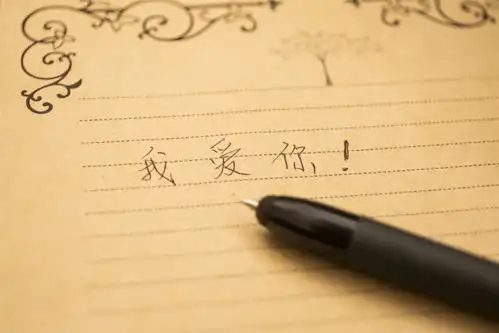 我爱你!